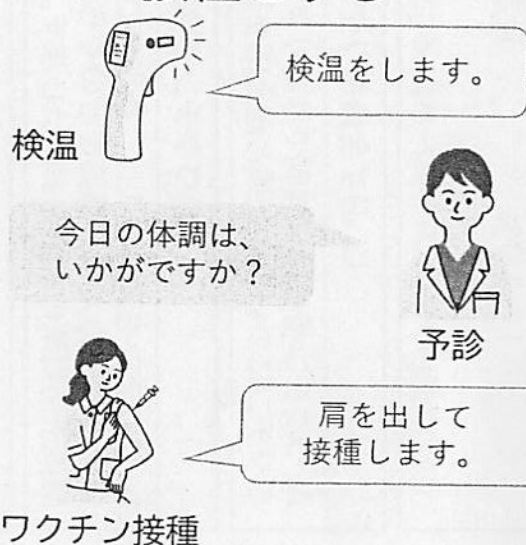 検温をします。
検温
今日の体調は、
いかがですか？
予診
肩を出して
接種します。
ワクチン接種